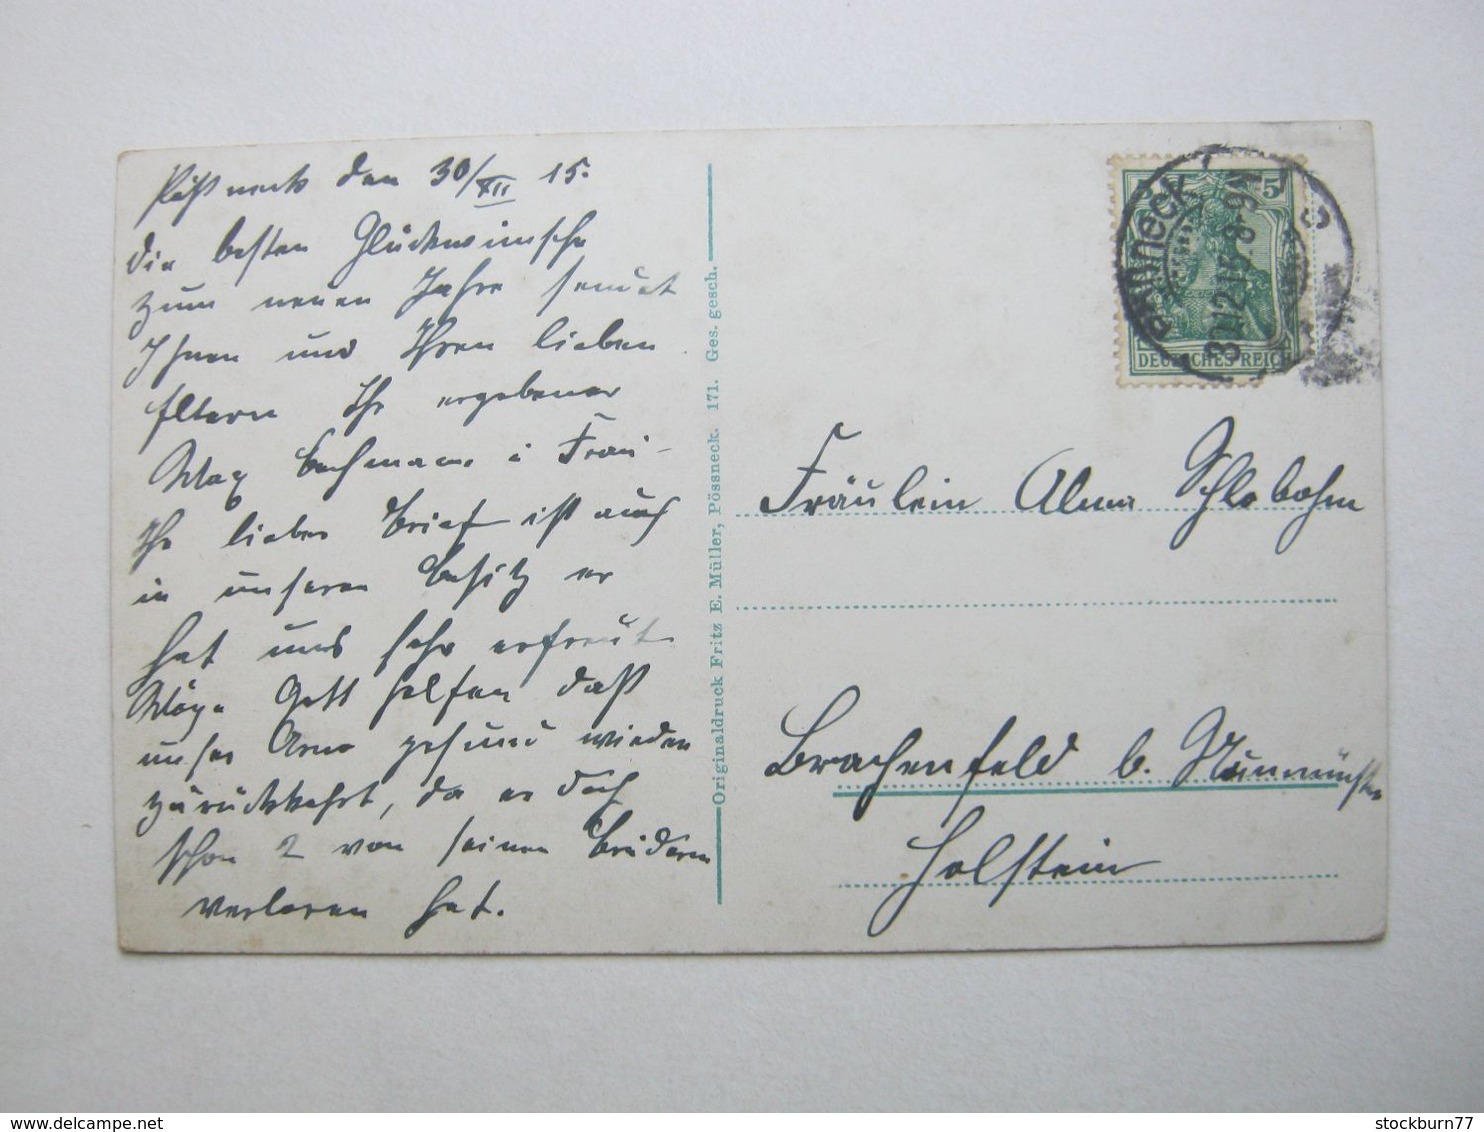 Pößneck den 30/XII 15.
die besten Glückwünsche
zum neuen Jahre sendet
Ihnen und Ihren lieben
Eltern Ihr ergebener
Max Bachmann u Frau
Ihr lieber Brief ist auch
in unseren Besitz er
hat uns sehr erfreut
Möge Gott helfen daß
unser Arno gesund wieder
zurückkehrt, da er doch
schon 2 von seinen Brüdern
verloren hat.
Originaldruck Fritz E. Müller, Pössneck. 171. Ges. gesch.
5
DEUTSCHES REICH
PÖSSNECK
30.12.15.8-9V
Fräulein Alma Schlobohm
Brachenfeld b. Neumünster
Holstein
stockburn77